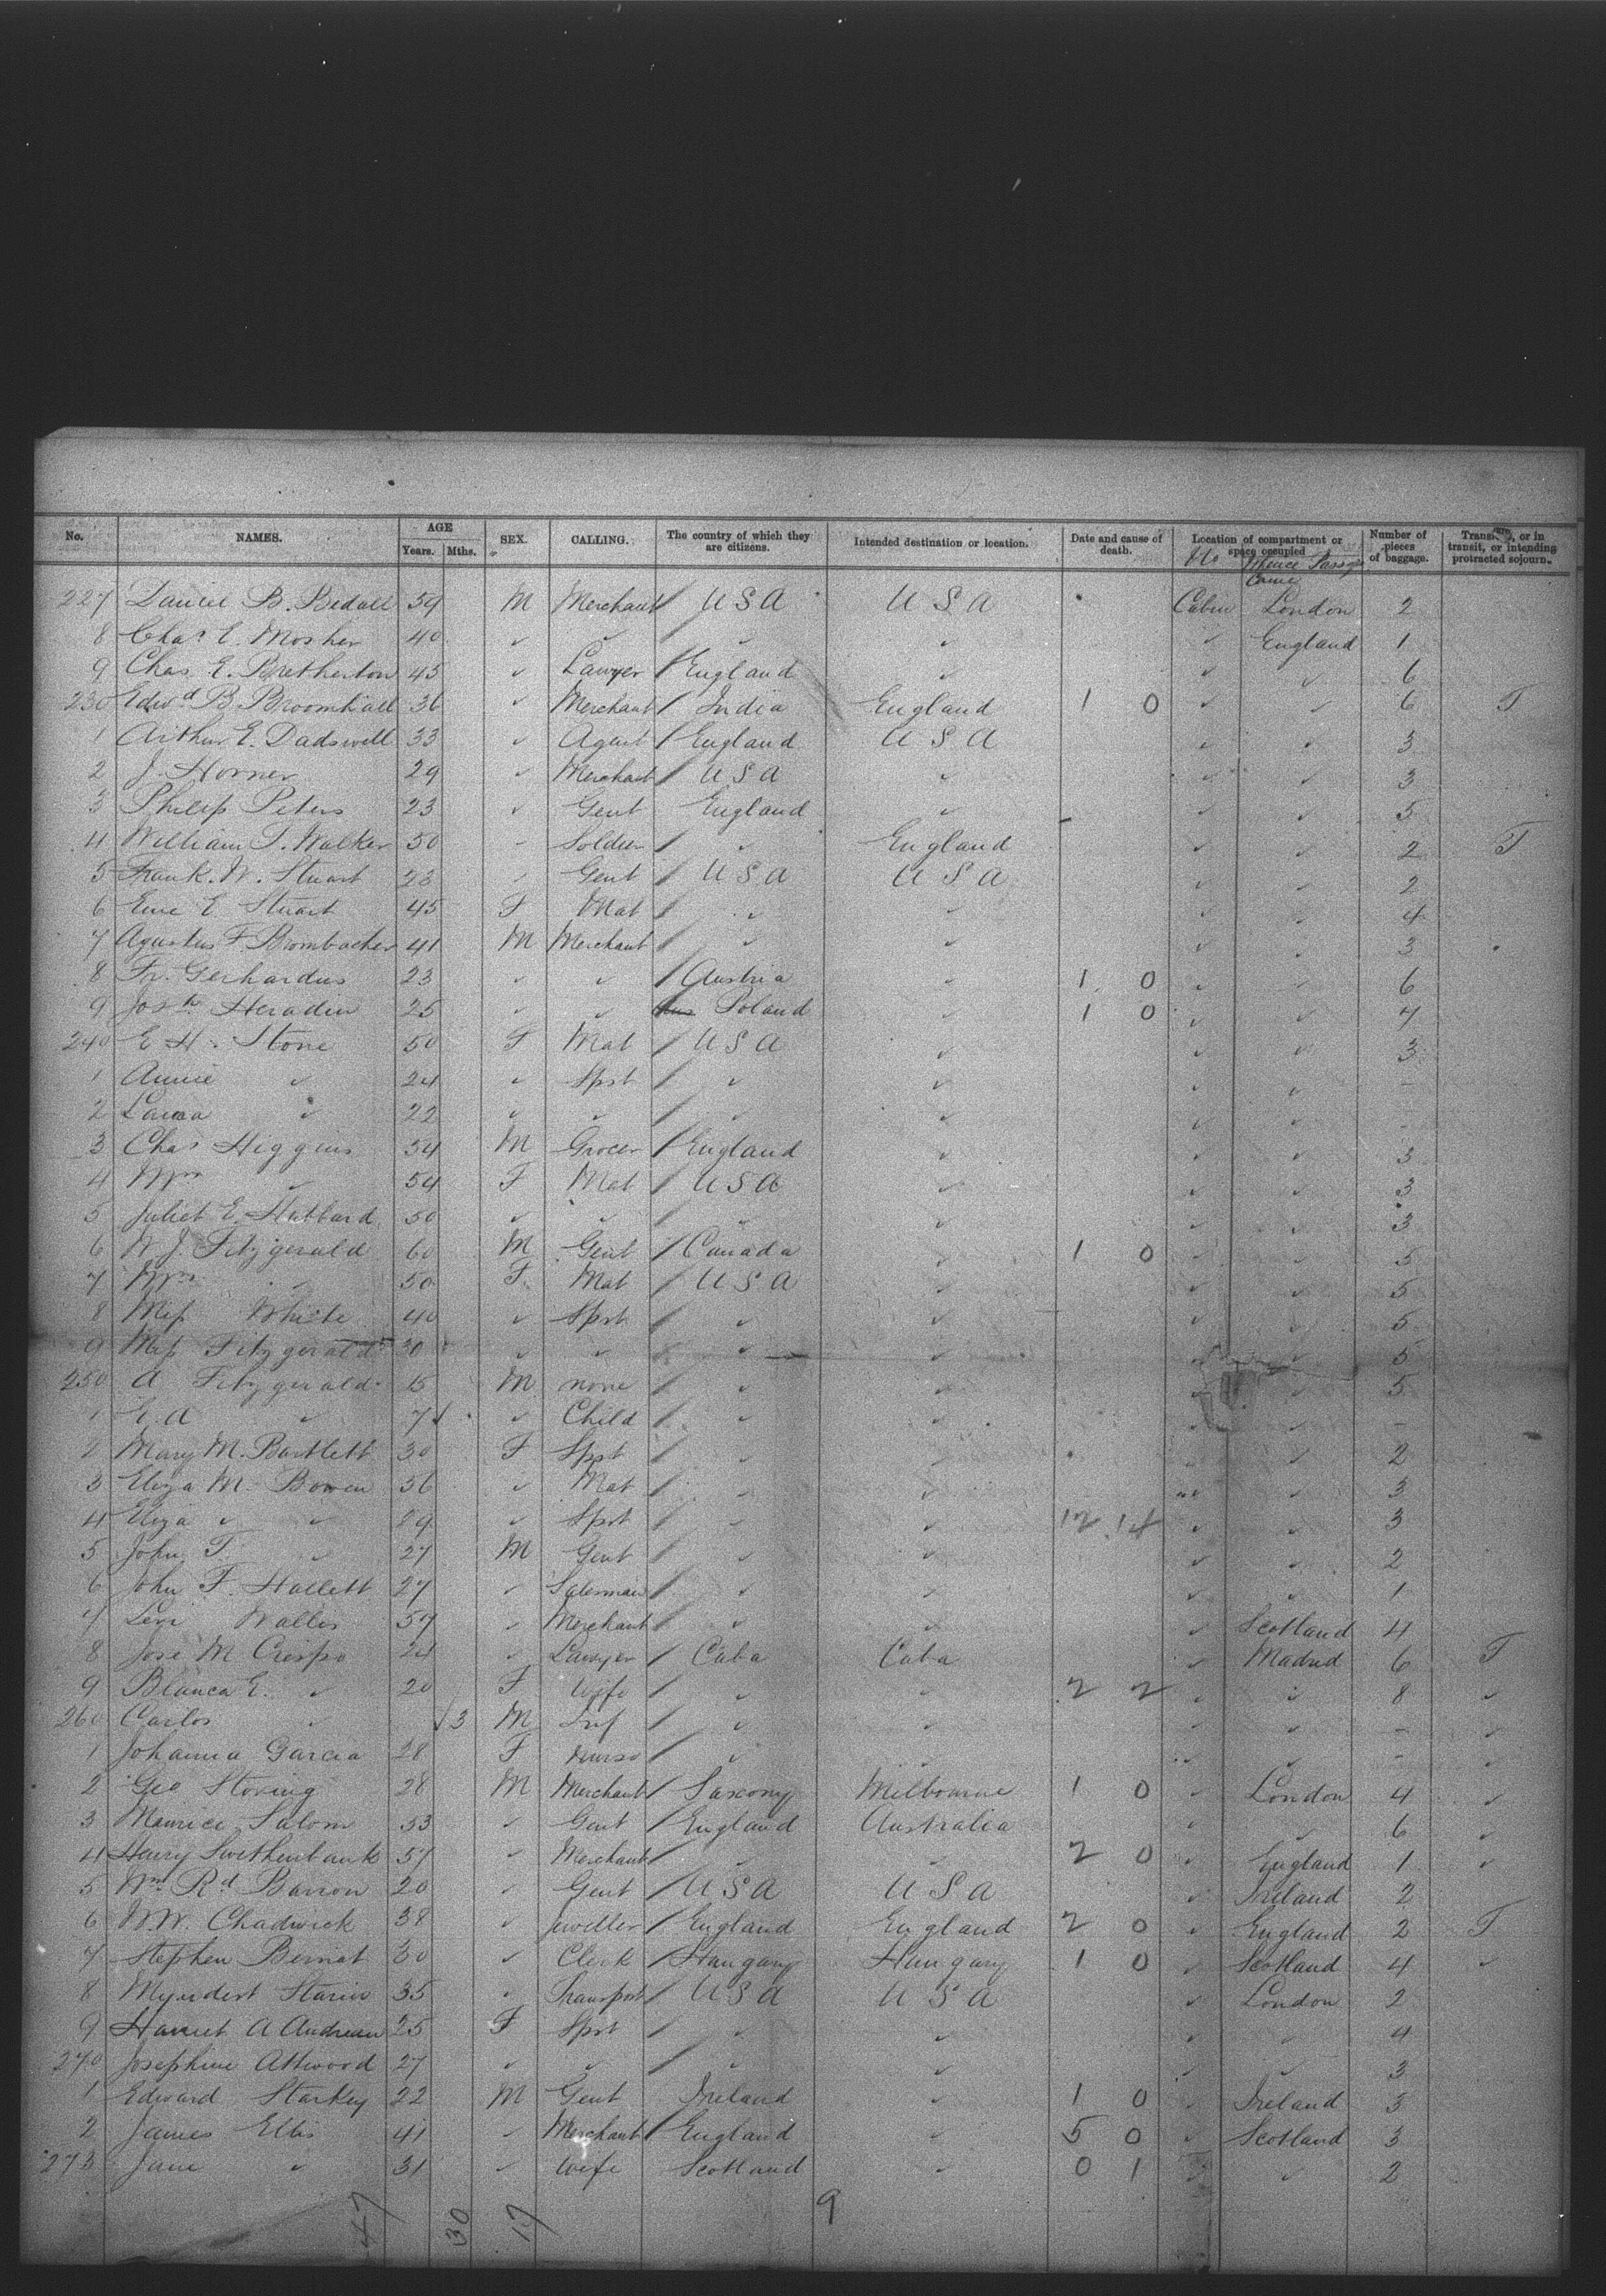 No. NAMES. AGE Years. Mths. SEX. CALLING. The country of which they are citizens. Intended destination or location. Date and cause of death. Location of compartment or space occupied Number of pieces of baggage. Transient, or in transit, or intending protracted sojourn.
No Whence Passgr Came
227 Daniel B. Bedall 59 M Merchant / U S A U S A Cabin London 2
8 Chas E. Mosher 40 ✓ ✓ ✓ ✓ ✓ England 1
9 Chas E. Bretherton 45 ✓ Lawyer / England ✓ ✓ ✓ 6
230 Edwd B. Broomhall 36 ✓ Merchant / India England 1 0 ✓ ✓ 6 T
1 Arthur E. Dadswell 33 ✓ Agent / England U S A ✓ ✓ 3
2 J. Horner 29 ✓ Merchant / U S A ✓ ✓ ✓ 3
3 Philip Peters 23 ✓ Gent England ✓ ✓ ✓ 5
4 William T. Walker 50 ✓ Soldier / ✓ England ✓ ✓ 2 T
5 Frank. W. Stuart 23 ✓ Gent / U S A U S A ✓ ✓ 2
6 E Stuart 45 F Mat / ✓ ✓ ✓ ✓ 4
7 Agustus F. Brombacher 41 M Merchant / ✓ ✓ ✓ ✓ 3
8 Fr. Gerhardus 23 ✓ ✓ / Austria ✓ 1 0 ✓ ✓ 6
9 Josh Heradin 25 ✓ ✓ Poland ✓ 1 0 ✓ ✓ 7
240 E H. Stone 50 F Mat / U S A ✓ ✓ ✓ 3
1 Annie ✓ 24 ✓ Spst / ✓ ✓ ✓ ✓ -
2 Laura ✓ 22 ✓ ✓ / ✓ ✓ ✓ ✓ -
3 Chas Higgins 54 M Grocer / England ✓ ✓ ✓ 3
4 Mrs ✓ 54 F Mat / U S A ✓ ✓ ✓ 3
5 Juliet E. Hubbard 50 ✓ ✓ / ✓ ✓ ✓ ✓ 3
6 W. J. Fitzgerald 60 M Gent / Canada ✓ 1 0 ✓ ✓ 5
7 Mrs ✓ 50 F Mat / U S A ✓ ✓ ✓ 5
8 Miss White 40 ✓ Spst / ✓ ✓ ✓ ✓ 5
9 Miss Fitzgerald 30 ✓ ✓ / ✓ ✓ ✓ ✓ 5
250 A Fitzgerald 15 M none / ✓ ✓ ✓ ✓ 5
1 E. A ✓ 7 ✓ Child / ✓ ✓ ✓ ✓ -
2 Mary M. Bartlett 30 F Spst / ✓ ✓ ✓ ✓ 2
3 Eliza M. Bowen 36 ✓ Mat / ✓ ✓ ✓ ✓ 3
4 Eliza ✓ ✓ 29 ✓ Spst / ✓ ✓ 12 14 ✓ ✓ 3
5 John T. ✓ 27 M Gent / ✓ ✓ ✓ ✓ 2
6 John F. Hallett 27 ✓ Salesman / ✓ ✓ ✓ ✓ 1
7 Levi Waller 57 ✓ Merchant / ✓ ✓ ✓ Scotland 4
8 Jose M Crespo 24 ✓ Lawyer / Cuba Cuba ✓ Madrid 6 T
9 Blanca E. ✓ 20 F Wife / ✓ ✓ 2 2 ✓ ✓ 8 ✓
260 Carlos ✓ 3 M Inf / ✓ ✓ ✓ ✓ - ✓
1 Johanna Garcia 28 F nurse / ✓ ✓ ✓ ✓ - ✓
2 Geo Stoving 28 M Merchant / Saxony Milbourne 1 0 ✓ London 4 ✓
3 Maurice Salom 53 ✓ Gent / England Australia ✓ ✓ 6 ✓
4 Henry Swethenbank 57 ✓ Merchant / ✓ ✓ 2 0 ✓ England 1 ✓
5 Wm Rd Barron 20 ✓ Gent / U S A U S A ✓ Ireland 2
6 W.W. Chadwick 38 ✓ Jweller / England England 2 0 ✓ England 2 T
7 Stephen Bernat 30 ✓ Clerk / Hungary Hungary 1 0 ✓ Scotland 4 ✓
8 Myndert Starin 35 ✓ Transport / U S A U S A ✓ London 2
9 Harriet A Andrean 25 F Spst / ✓ ✓ ✓ ✓ 4
270 Josephine Attwood 27 ✓ ✓ / ✓ ✓ ✓ ✓ 3
1 Edward Starkey 22 M Gent Ireland ✓ 1 0 ✓ Ireland 3
2 James Ellis 41 ✓ Merchant / England ✓ 5 0 ✓ Scotland 3
273 Jane ✓ 31 ✓ Wife Scotland ✓ 0 1 ✓ ✓ 2
47 30 17 9